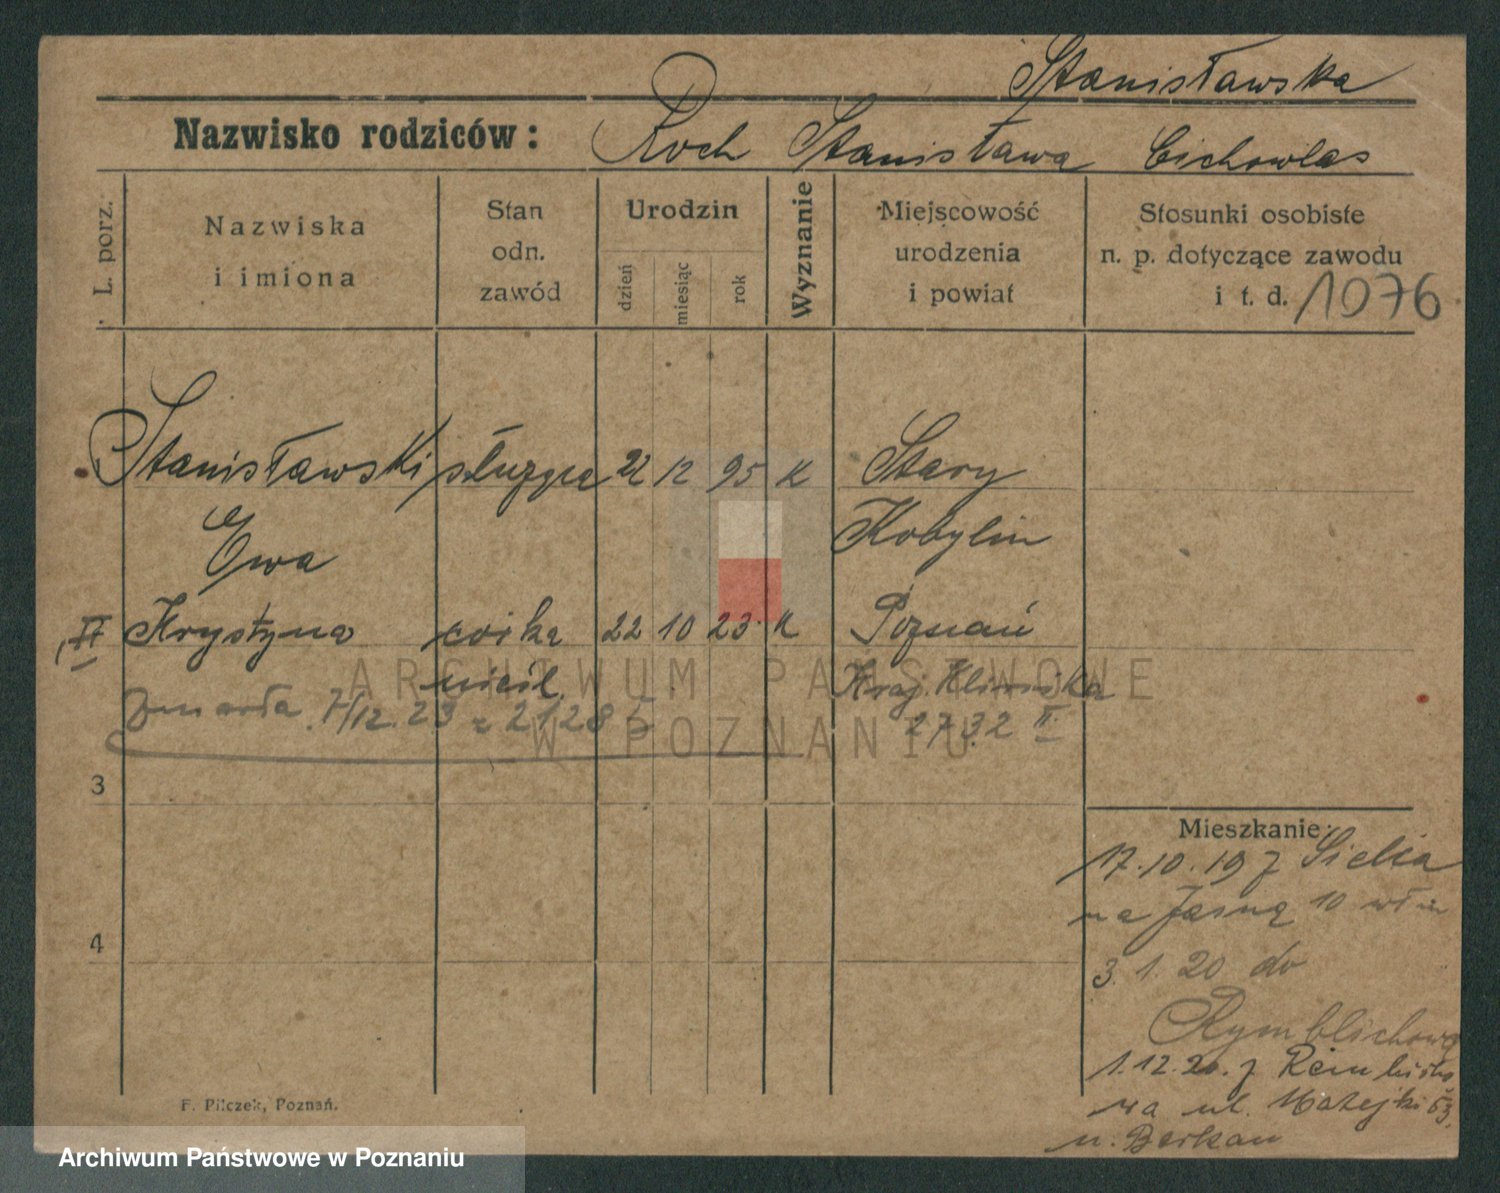 Stanisławska
Nazwisko rodziców: Roch Stanisława Cichowlas
L. porz.
Nazwiska
i imiona
Stan
odn.
zawód
Urodzin
dzień
miesiąc
rok
Wyznanie
Miejscowość
urodzenia
i powiat
Stosunki osobiste
n. p. dotyczące zawodu
i t. d. 1076
Stanisławski służąca 22 12 95 K Stary
Ewa Kobylin
II Krystyna córka 22 10 23 K Poznań
nieśl.
Zmarła 7/12.23
2732 II
3
4
Mieszkanie:
17.10.19 z
na Jasną 10
3.1.20 do
1.12.20. z
na ul. Matejki 53
u.
F. Pilczek, Poznań.
ARCHIWUM PAŃSTWOWE
W POZNANIU
Archiwum Państwowe w Poznaniu